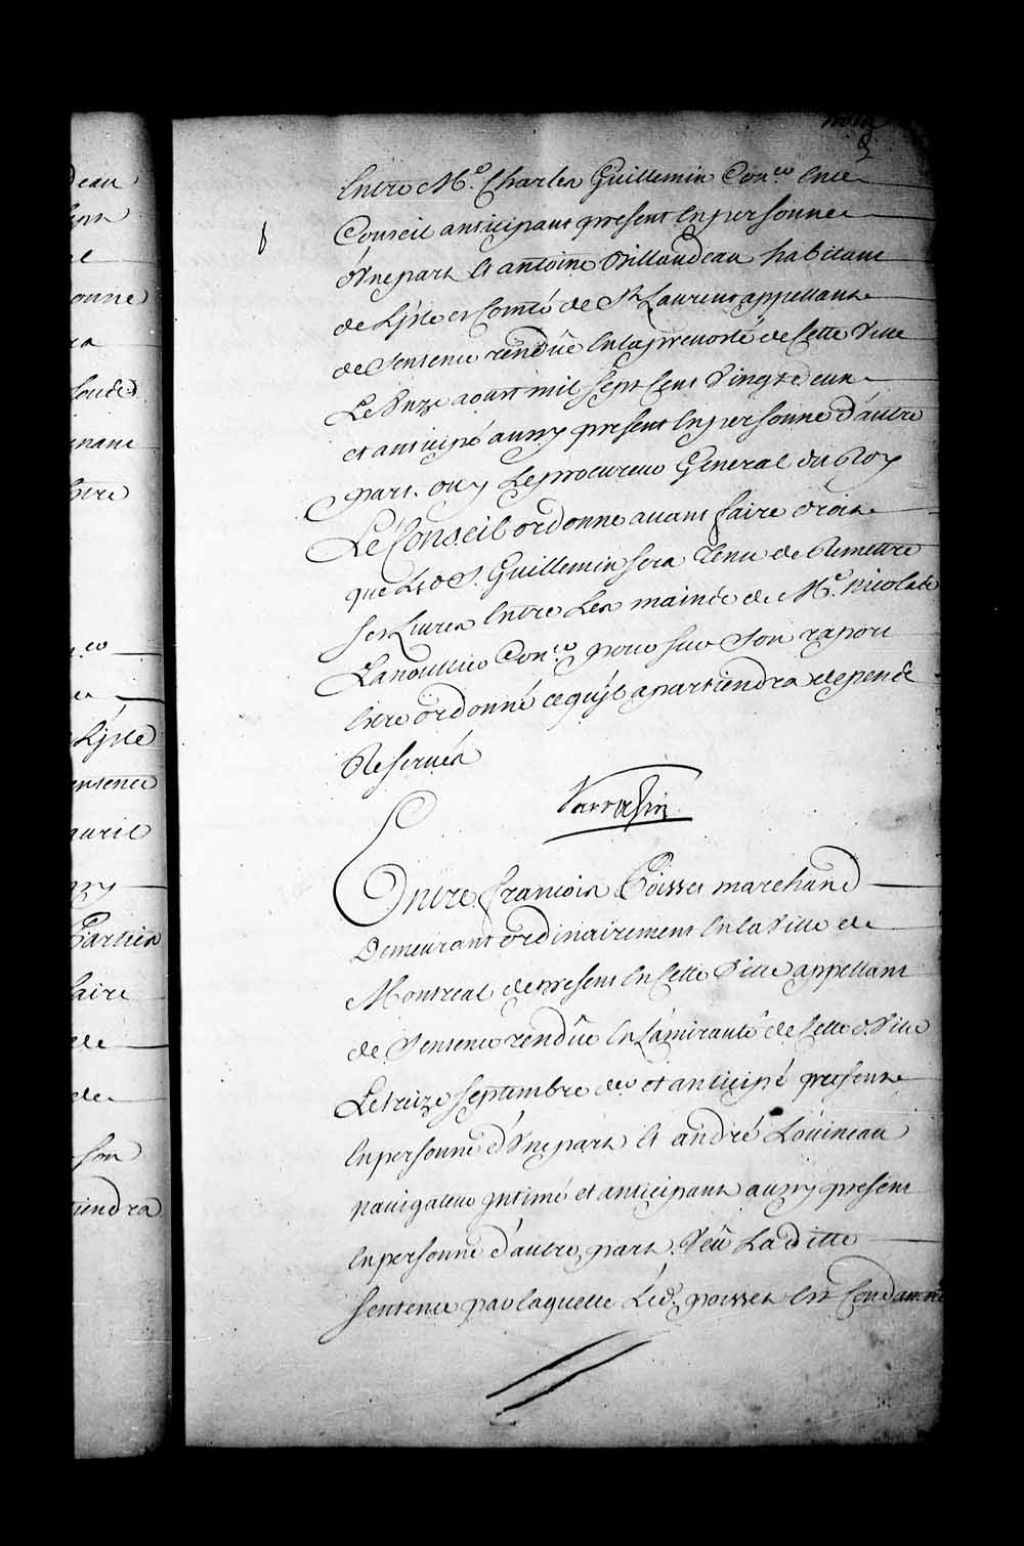 Entre Me. Charles Guillemin Coner. En ce
Conseil anticipant present En personne
d'Une part Et antoine Villandeau habitant
de L'jsle et Comté de St Laurent appellant
de Sentence rendüe En la prevosté de Cette Ville
Le Unze aoust mil Sept Cent Vingt deux
et anticipé aussy present En personne d'autre
part. ouy Le procureur General du Roy
Le Conseil ordonne avant faire droit
que Led S. Guillemin sera tenu de Remettre
ses Livres Entre Les mains de Me. Nicolas
Lanoullier Coner. pour sur Son raport
Etre ordonné ce qu'jl apartiendra depends
Reservés
Sarrasin
Entre francois Poisset marchand
Demeurant ordinairement En la Ville de
Montreal de present En Cette Ville appellant
de Sentence rendüe En L'amirauté de Cette d. Ville
Le treize septembre der et anticipé present
En personne d'Une part Et andré Loüineau
navigateur jntimé et anticipant aussy present
En personne d'autre part. Veü La Ditte
sentence par laquelle Led. poisset Est Condamné
deau
onne
ra
nant
L'jsle
sentence
avril
Parties
faire
de
de
son
tiendra